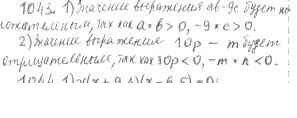 1043. 1) Значение выражения ab-9c будет по
ложительным, так как a*b>0, -9*c>0.
2) Значение выражения 10p - m будет
отрицательным, так как 10p<0, -m*n<0.